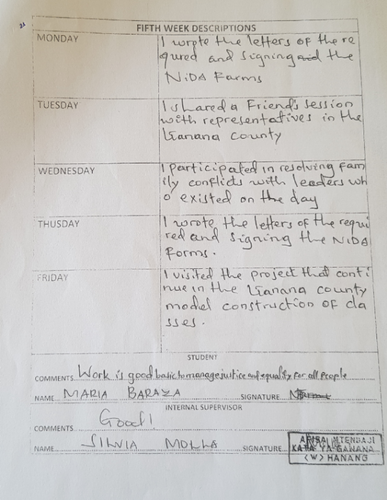 FIFTH WEEK DESCRIPTIONS
MONDAY
I wrote the letters of the re
qured and signing and the
NiDA Farms
TUESDAY
I shared a Friends session
with representatives in the
Ganana county
WEDNESDAY
I participated in resolving fam
ily conflicts with leaders wh
o existed on the day
THUSDAY
I wrote the letters of the requi
red and signing the NIDA
Forms.
FRIDAY
I visited the project that conti
nue in the Ganana county
model construction of cla
sses.
STUDENT
COMMENTS Work is good basic to manage justice and equality for all people
NAME MARIA BARAZA SIGNATURE
INTERNAL SUPERVISOR
COMMENTS Good!
NAME SILVIA MOLLA SIGNATURE
AFISA MTENDAJI
KATA YA GANANA
(W) HANANG